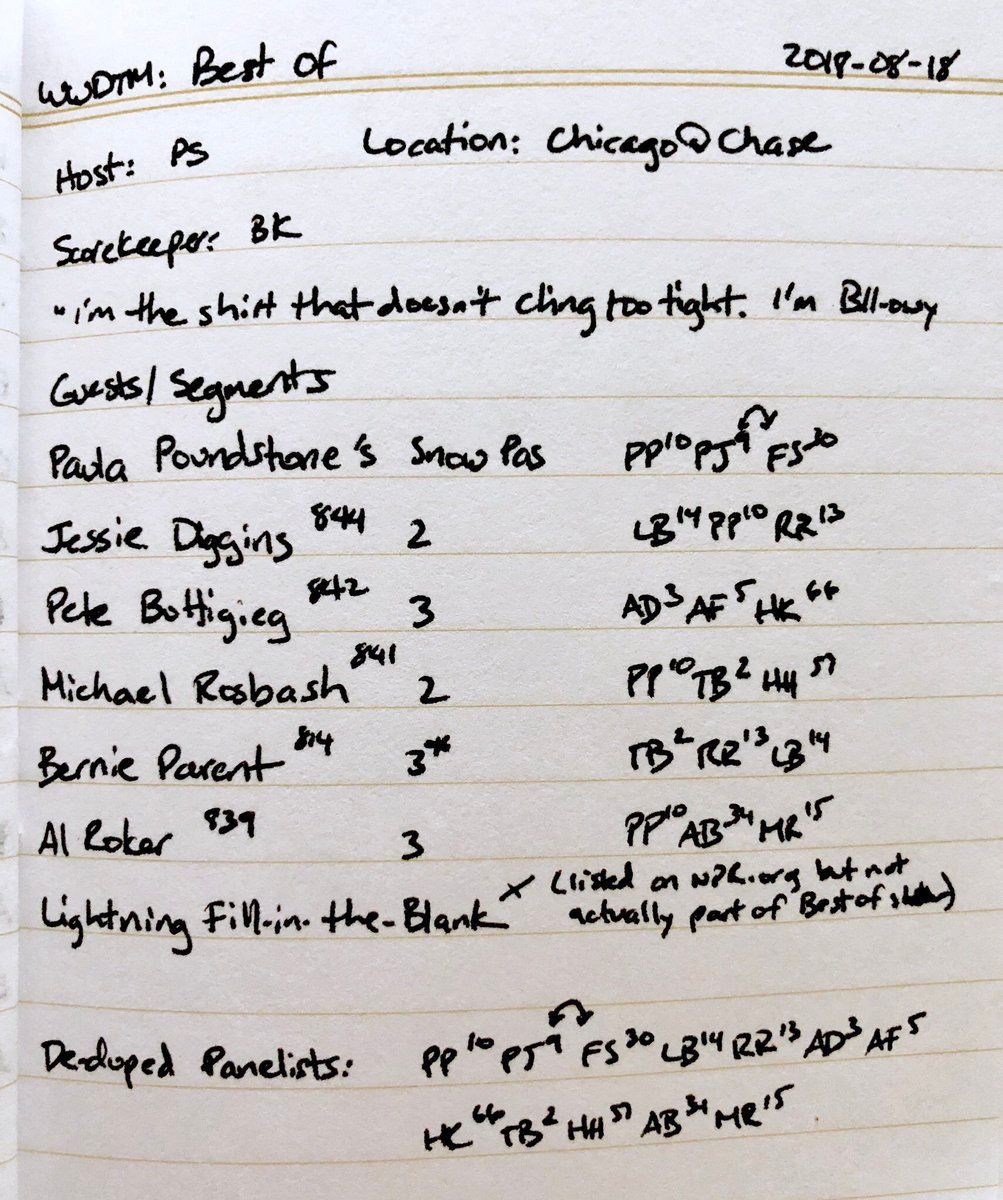 WWDTM: Best Of 2018-08-18
Host: PS Location: Chicago@Chase
Scorekeeper: BK
"i'm the shirt that doesn't cling too tight. I'm Bill-owy
Guests/Segments
Paula Poundstone's Snow Pas PP10 PJ9 FS30
Jessie Diggins 844 2 LB14 PP10 RR13
Pete Buttigieg 842 3 AD3 AF5 HK66
Michael Rosbash 841 2 PP10 TB2 HH57
Bernie Parent 814 3* TB2 RR13 LB14
Al Roker 839 3 PP10 AB34 MR15
Lightning Fill-in-the-Blank x (listed on NPR.org but not
actually part of Best of)
De-duped Panelists: PP10 PJ9 FS30 LB14 RR13 AD3 AF5
HK66 TB2 HH57 AB34 MR15